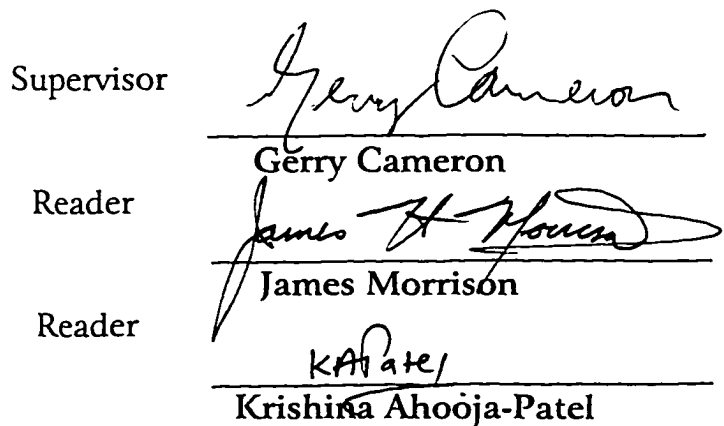 Supervisor Gerry Cameron
Gerry Cameron
Reader James H Morrison
James Morrison
Reader KAPatel
Krishina Ahooja-Patel